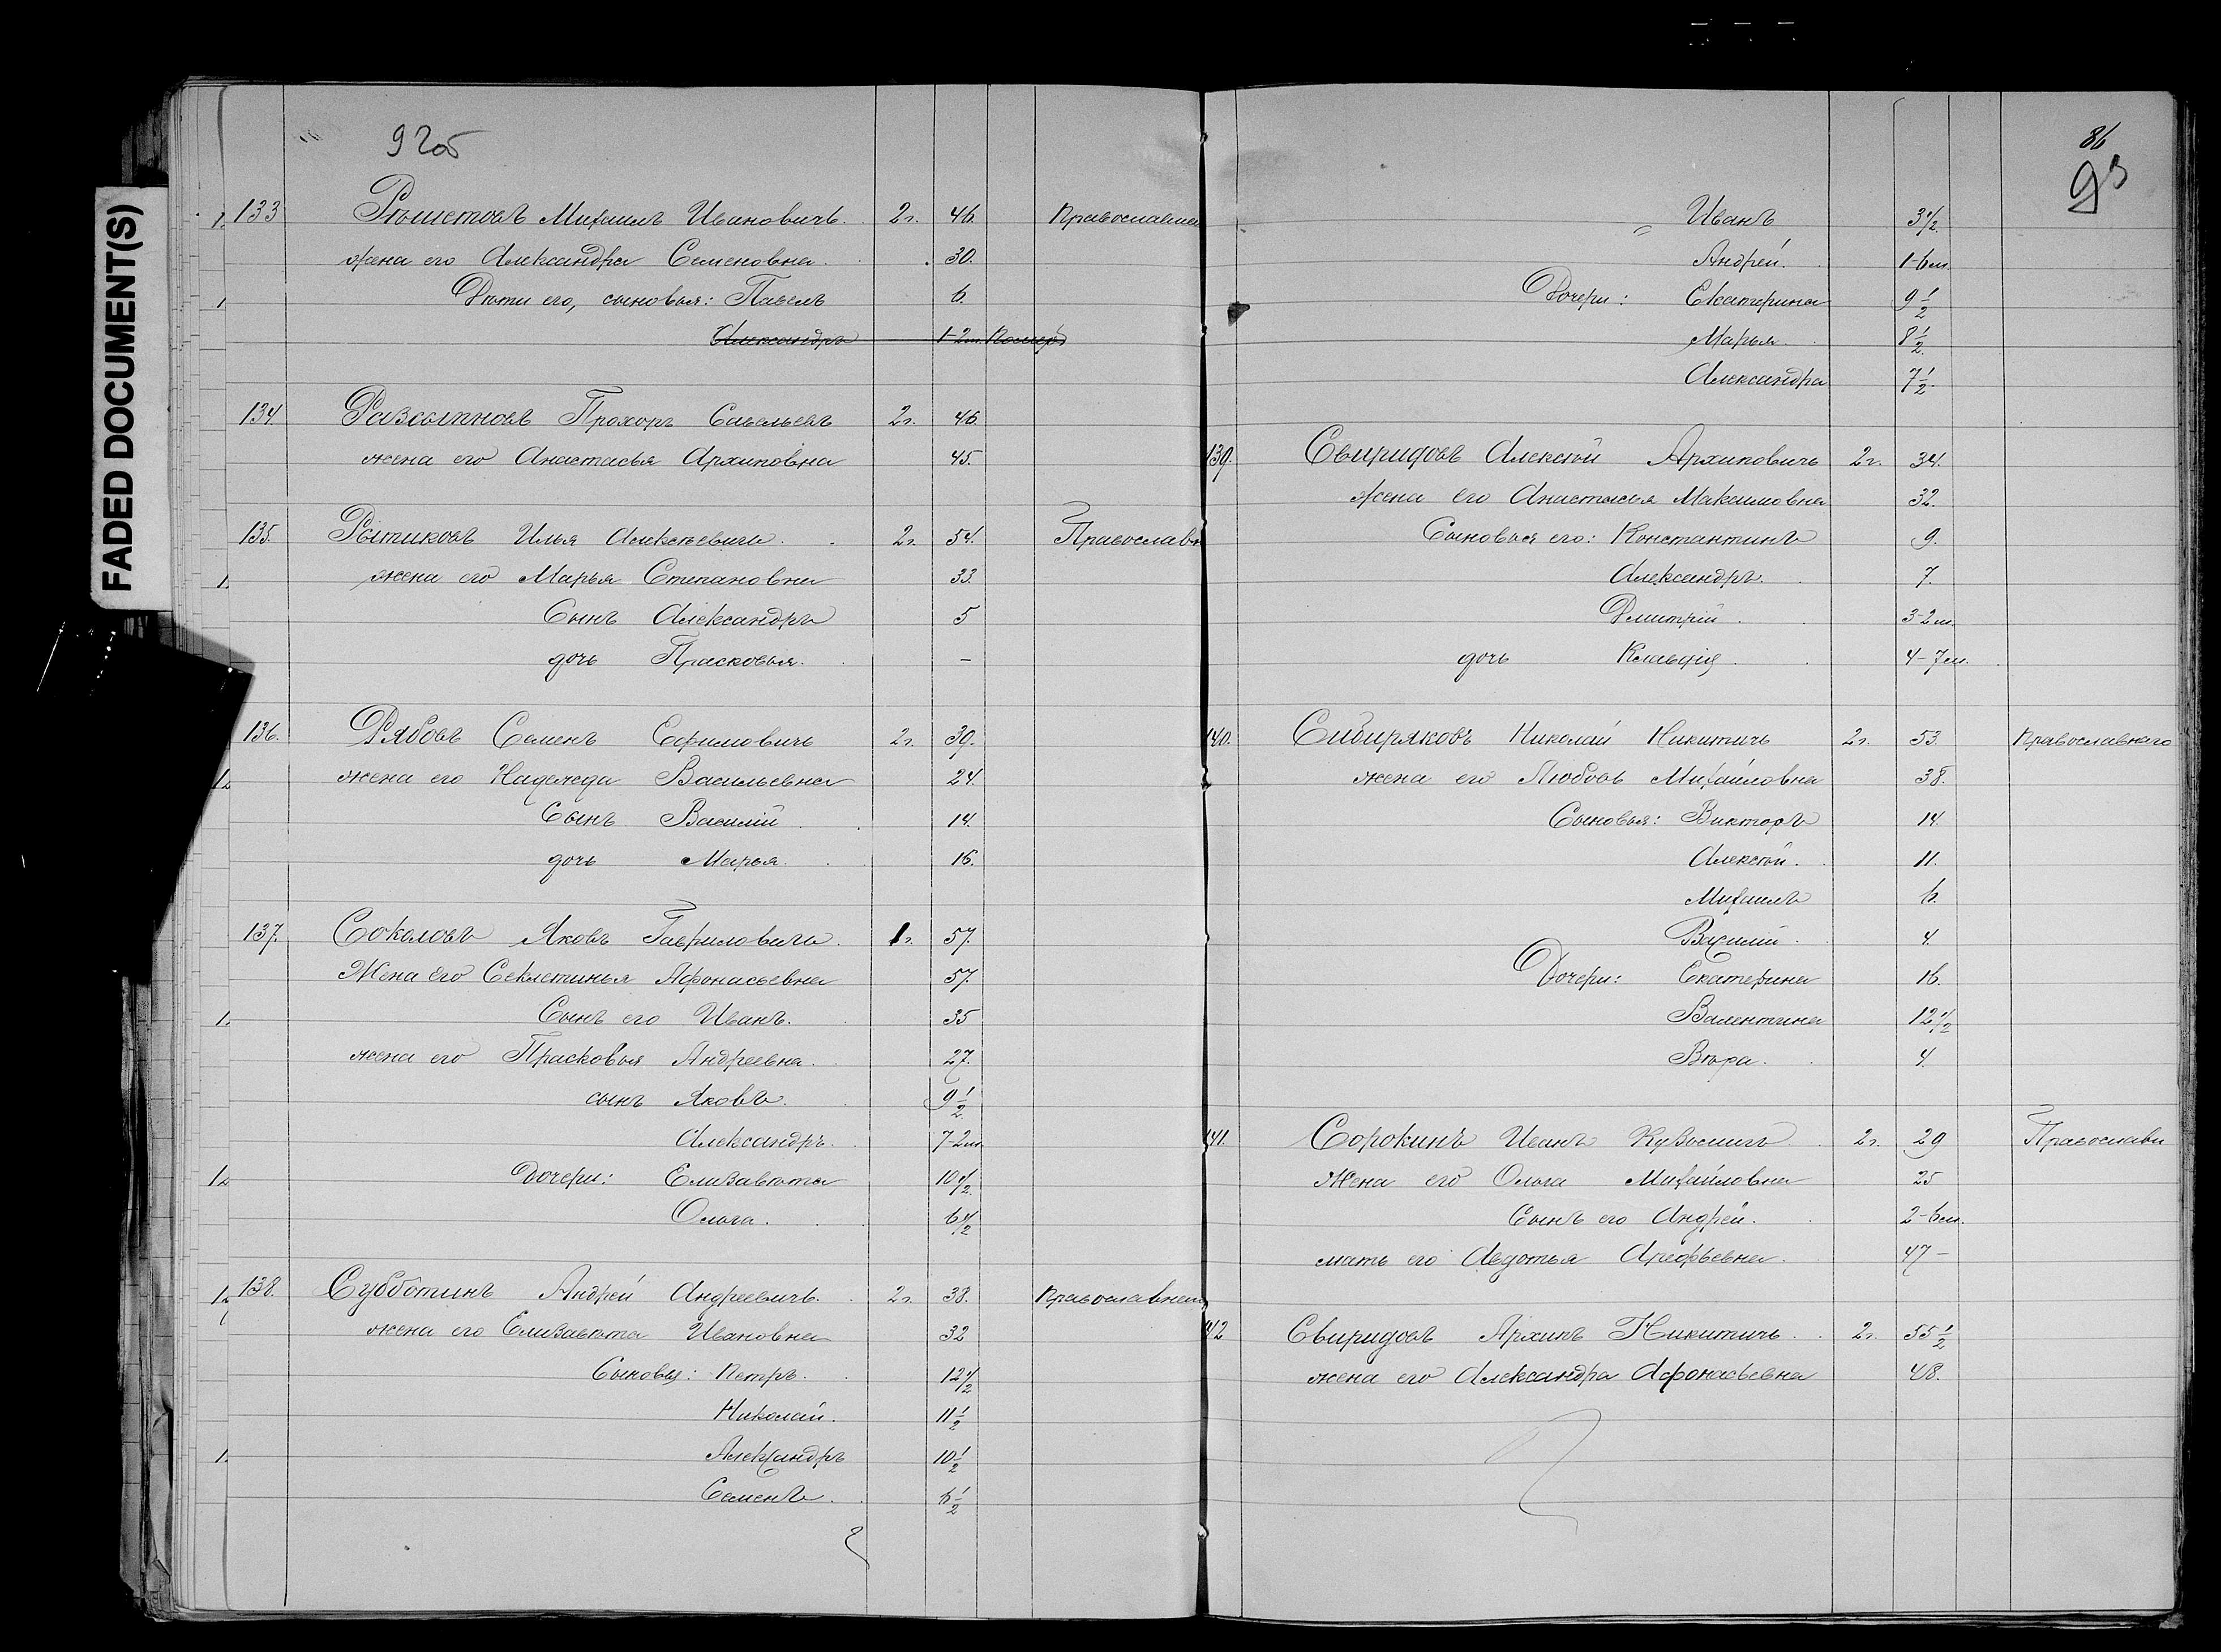 FADED DOCUMENT(S)
92об
133 Рѣшетовъ Михаилъ Ивановичъ. 2г. 46. Православнаго
жена его Александра Семеновна 30.
Дѣти его, сыновья: Павелъ 6.
Александръ 1-2м. Померъ
134. Прохоръ Савельевъ 2г. 46.
жена его Анастасья Архиповна 45.
135. Рытиковъ Илья Алексѣевичъ. 2г. 54. Православн
жена его Марья Степановна 33.
Сынъ Александръ 5
дочь Прасковья. –
136. Рябовъ Семенъ Ефимовичъ 2г. 39.
жена его Надежда Васильевна 24.
Сынъ Василій 14.
дочь Марья. 16.
137. Соколовъ Яковъ Гавриловичъ. 1г. 57.
Жена его Секлетинья Афонасьевна 57.
Сынъ его Иванъ. 35
жена его Прасковья Андреевна. 27.
сынъ Яковъ. 9 1/2.
Александръ. 7-2м.
Дочери: Елизавѣта 10 1/2.
Ольга. 6 1/2
138. Субботинъ Андрей Андреевичъ. 2г. 38. Православнаго
жена его Елизавѣта Ивановна 32
Сыновья: Петръ. 12 1/2
Николай. 11 1/2
Александръ 10 1/2
Семенъ. 6 1/2
86
93
Иванъ 3 1/2.
Андрей. 1-6м.
Дочери: Екатерина 9 1/2
Марья. 8 1/2.
Александра 7 1/2.
139. Свиридовъ Алексѣй Архиповичъ 2г. 34.
жена его Анастасья Максимовна 32.
Сыновья его: Константинъ 9.
Александръ. 7.
Дмитрій. 3-2м.
дочь Клавдія. 4-7м.
140. Сибиряковъ Николай Никитичъ 2г. 53. Православнаго
жена его Любовь Михайловна 38.
Сыновья: Викторъ 14.
Алексѣй. 11.
Михаилъ 6.
Василій. 4.
Дочери: Екатерина 16.
Валентина 12 1/2
Вѣра. 4.
141. Сорокинъ Иванъ Кузьмичъ 2г. 29 Православн
Жена его Ольга Михайловна 25
Сынъ его Андрей. 2-6м.
мать его Авдотья Арефьевна. 47 –
142 Свиридовъ Архипъ Никитичъ. 2г. 55 1/2
жена его Александра Афонасьевна 48.